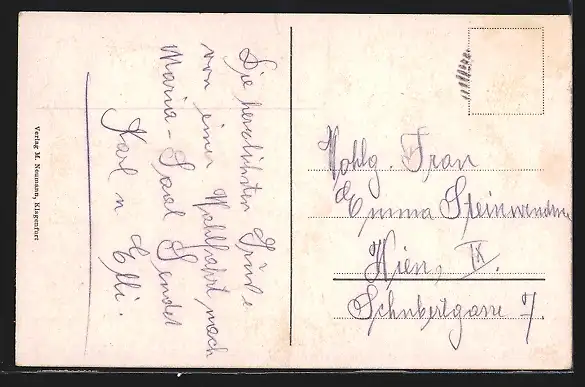 Die herzlichsten Grüße
von einer Wahlfahrt nach
Maria-Saal sendet
Karl u Elli.
Wohlg. Frau
Emma Steinwendner
Wien, IX.
Schubertgasse 7.
Verlag M. Neumann, Klagenfurt